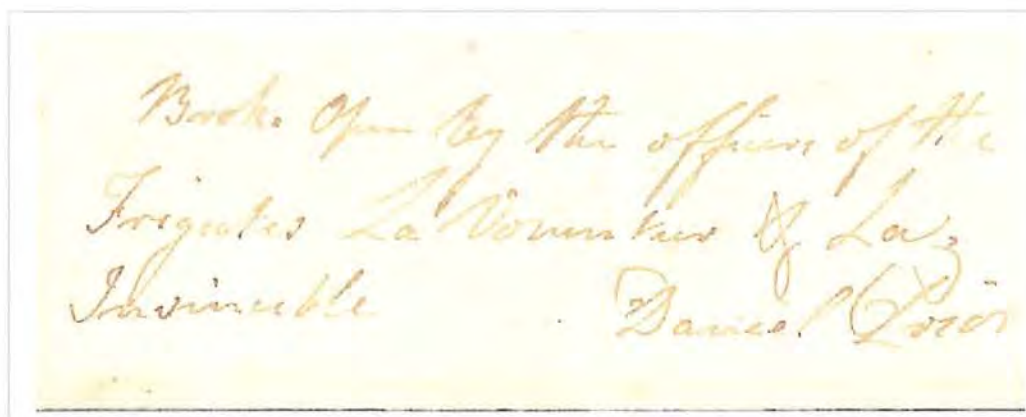 Broke Open by the officers of the
Frigates La & La
Invincible Daniel Prior